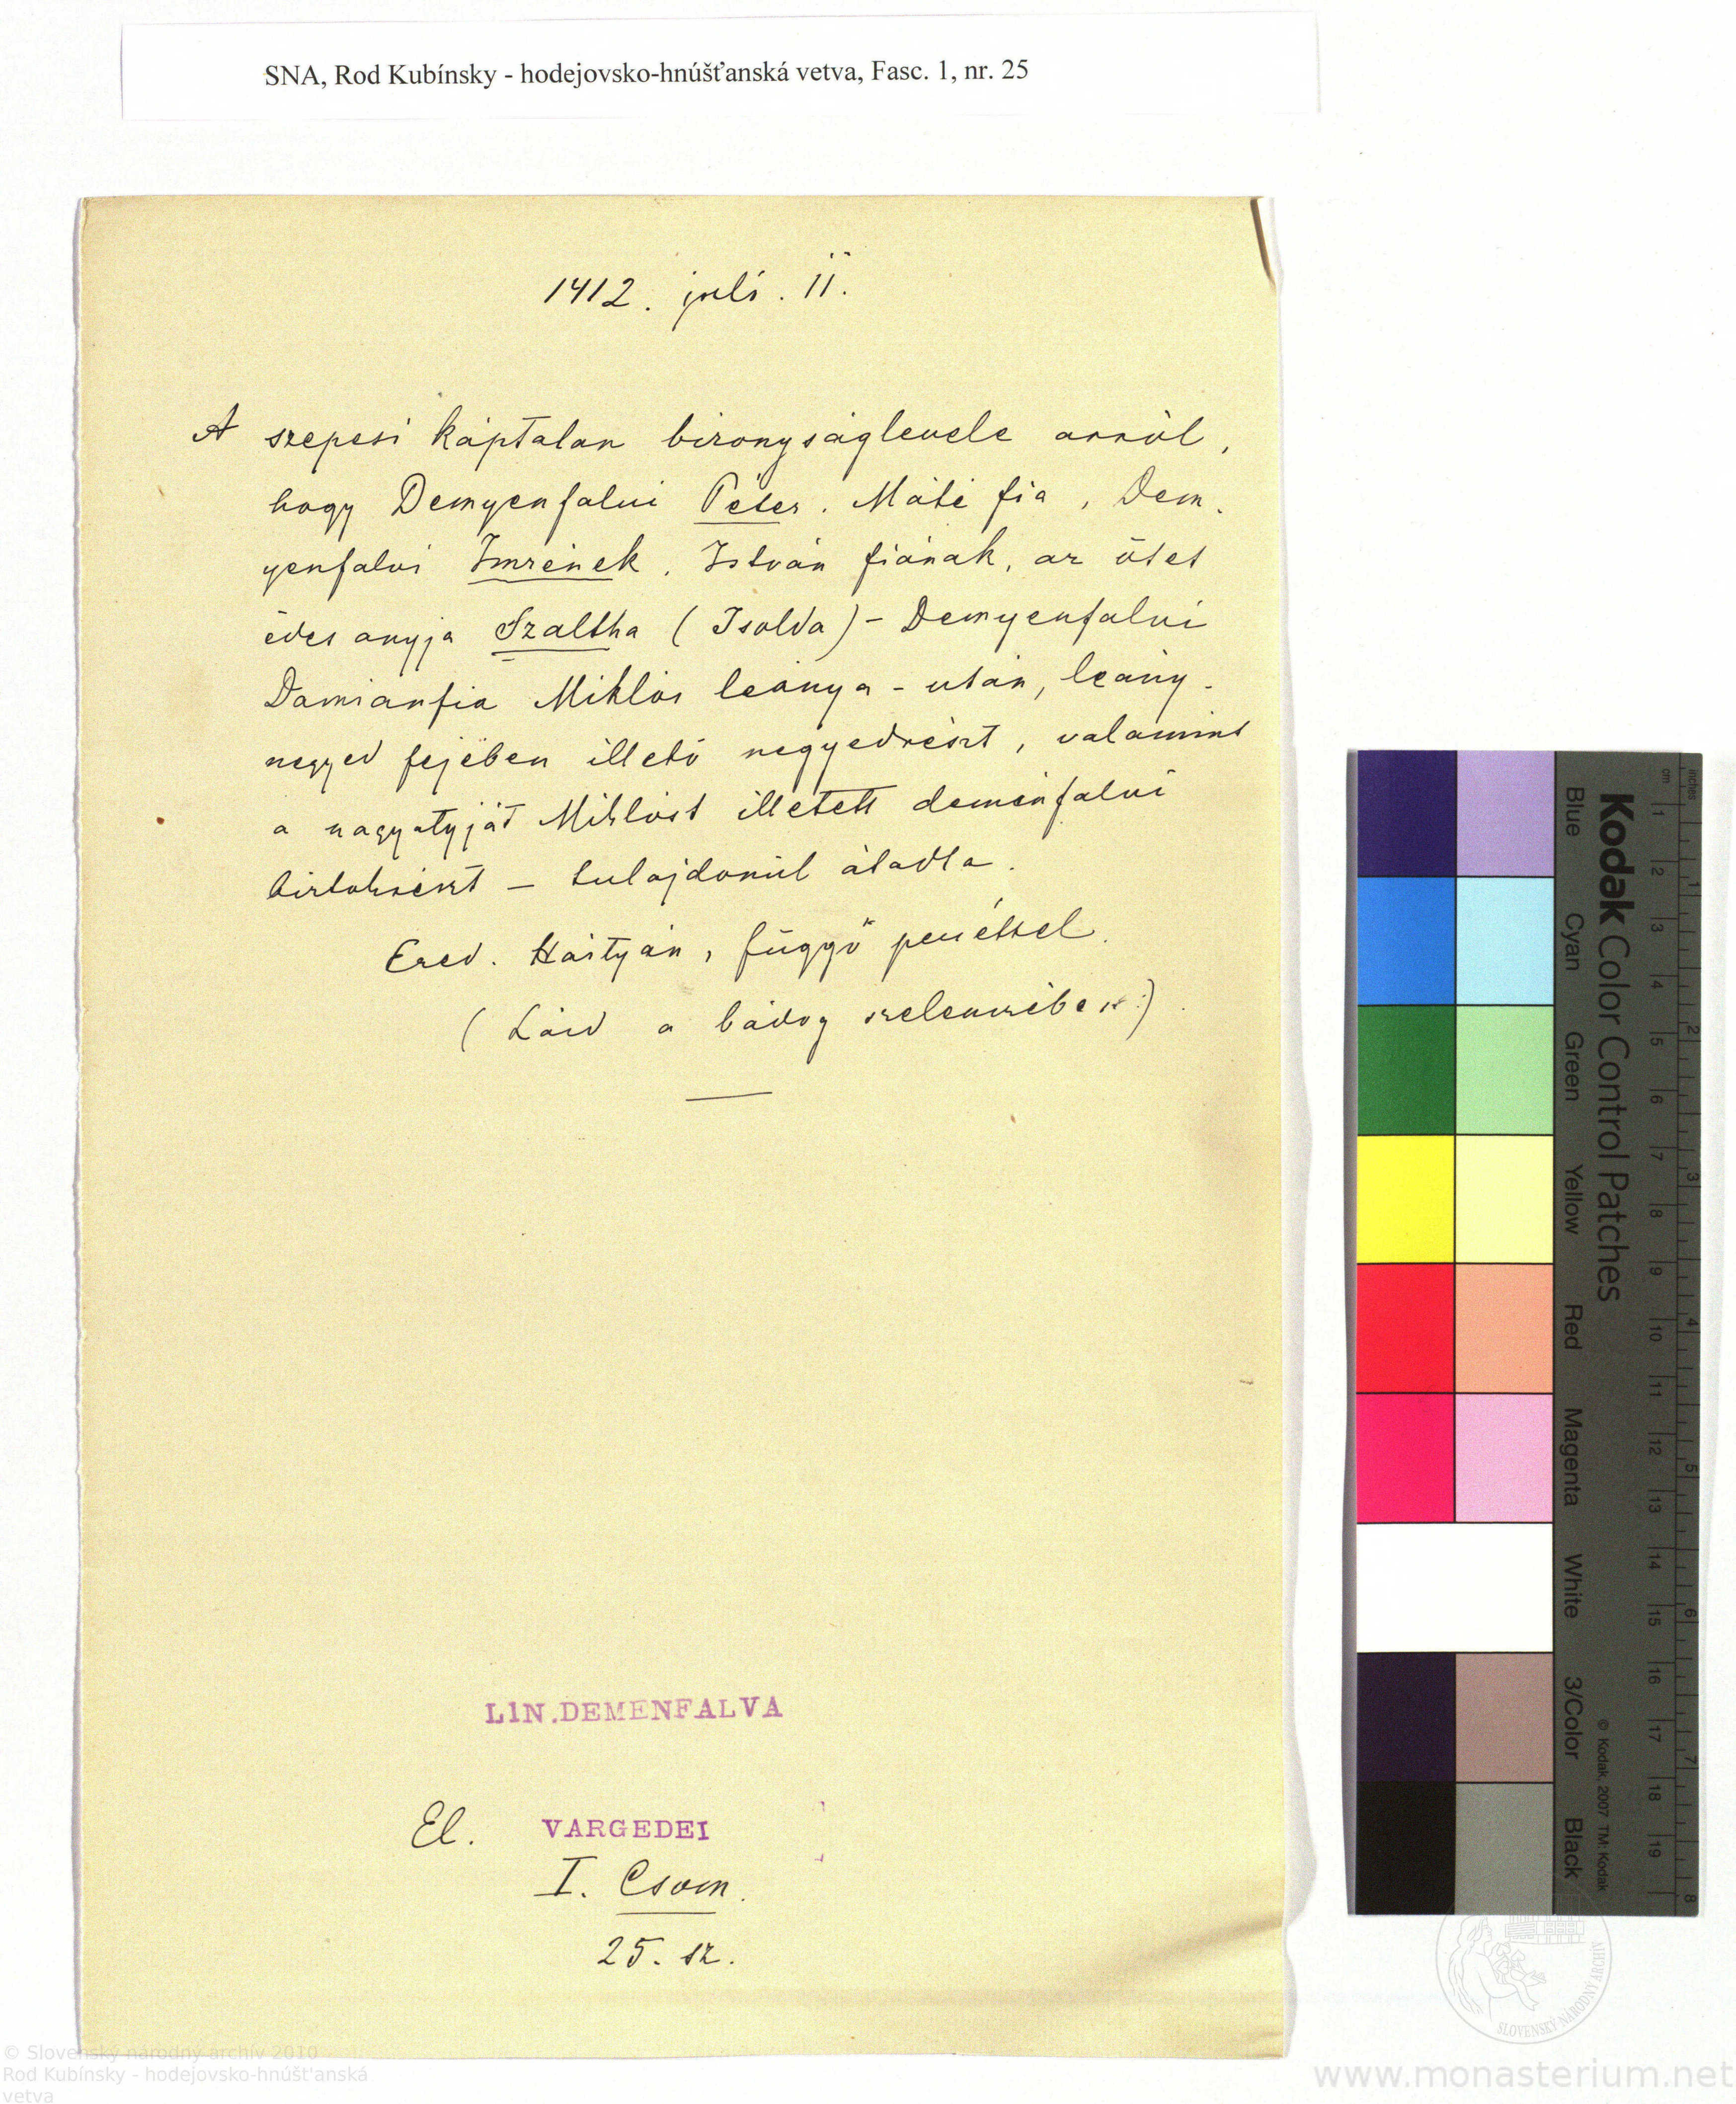 SNA, Rod Kubínsky - hodejovsko-hnúšťanská vetva, Fasc. 1, nr. 25
1412. juli. 11.
A szepesi káptalan bizonyságlevele arról,
hogy Demyenfalvi Péter, Máté fia, Dem-
yenfalvi Imrének, István fiának, az őtet
édes anyja Szaltha (Isolda) - Demyenfalvi
Damianfia Miklós leánya - után, leány-
negyed fejében illető negyedrészt, valamint
a nagyatyját Miklóst illetett deménfalvi
birtokrészt - tulajdonúl átadta.
Ered. Hártyán, függő pecséttel.
(Lásd a bádog szelenczében:)
LIN.DEMENFALVA
El. VARGEDEI
I. Csom.
25. sz.
Kodak Color Control Patches
Blue Cyan Green Yellow Red Magenta White 3/Color Black
© Kodak, 2007 TM: Kodak
cm 1 2 3 4 5 6 7 8 9 10 11 12 13 14 15 16 17 18 19
inches 1 2 3 4 5 6 7 8
SLOVENSKÝ NÁRODNÝ ARCHÍV
© Slovenský národný archív 2010
Rod Kubínsky - hodejovsko-hnúšt'anská
vetva
www.monasterium.net